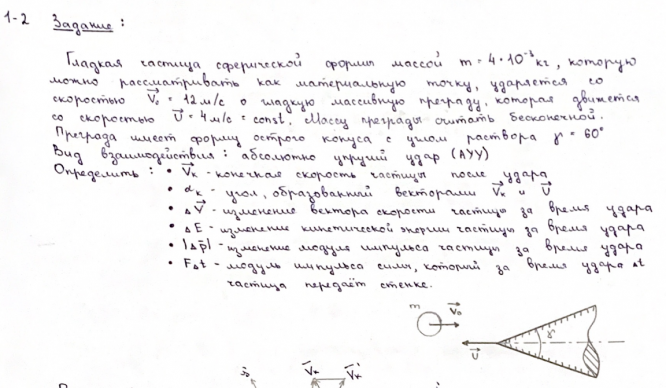 1-2 Задание:
Гладкая частица сферической формы массой m = 4·10⁻³ кг, которую
можно рассматривать как материальную точку, ударяется со
скоростью V₀ = 12 м/с о гладкую массивную преграду, которая движется
со скоростью U = 4 м/с = const. Массу преграды считать бесконечной.
Преграда имеет форму острого конуса с углом раствора γ = 60°
Вид взаимодействия: абсолютно упругий удар (АУУ)
Определить: • Vк - конечная скорость частицы после удара
• αк - угол, образованный векторами Vк и U
• ΔV - изменение вектора скорости частицы за время удара
• ΔE - изменение кинетической энергии частицы за время удара
• |Δp| - изменение модуля импульса частицы за время удара
• FΔt - модуль импульса силы, который за время удара Δt
частица передаёт стенке.
m
V₀
γ
U
Vк Vк